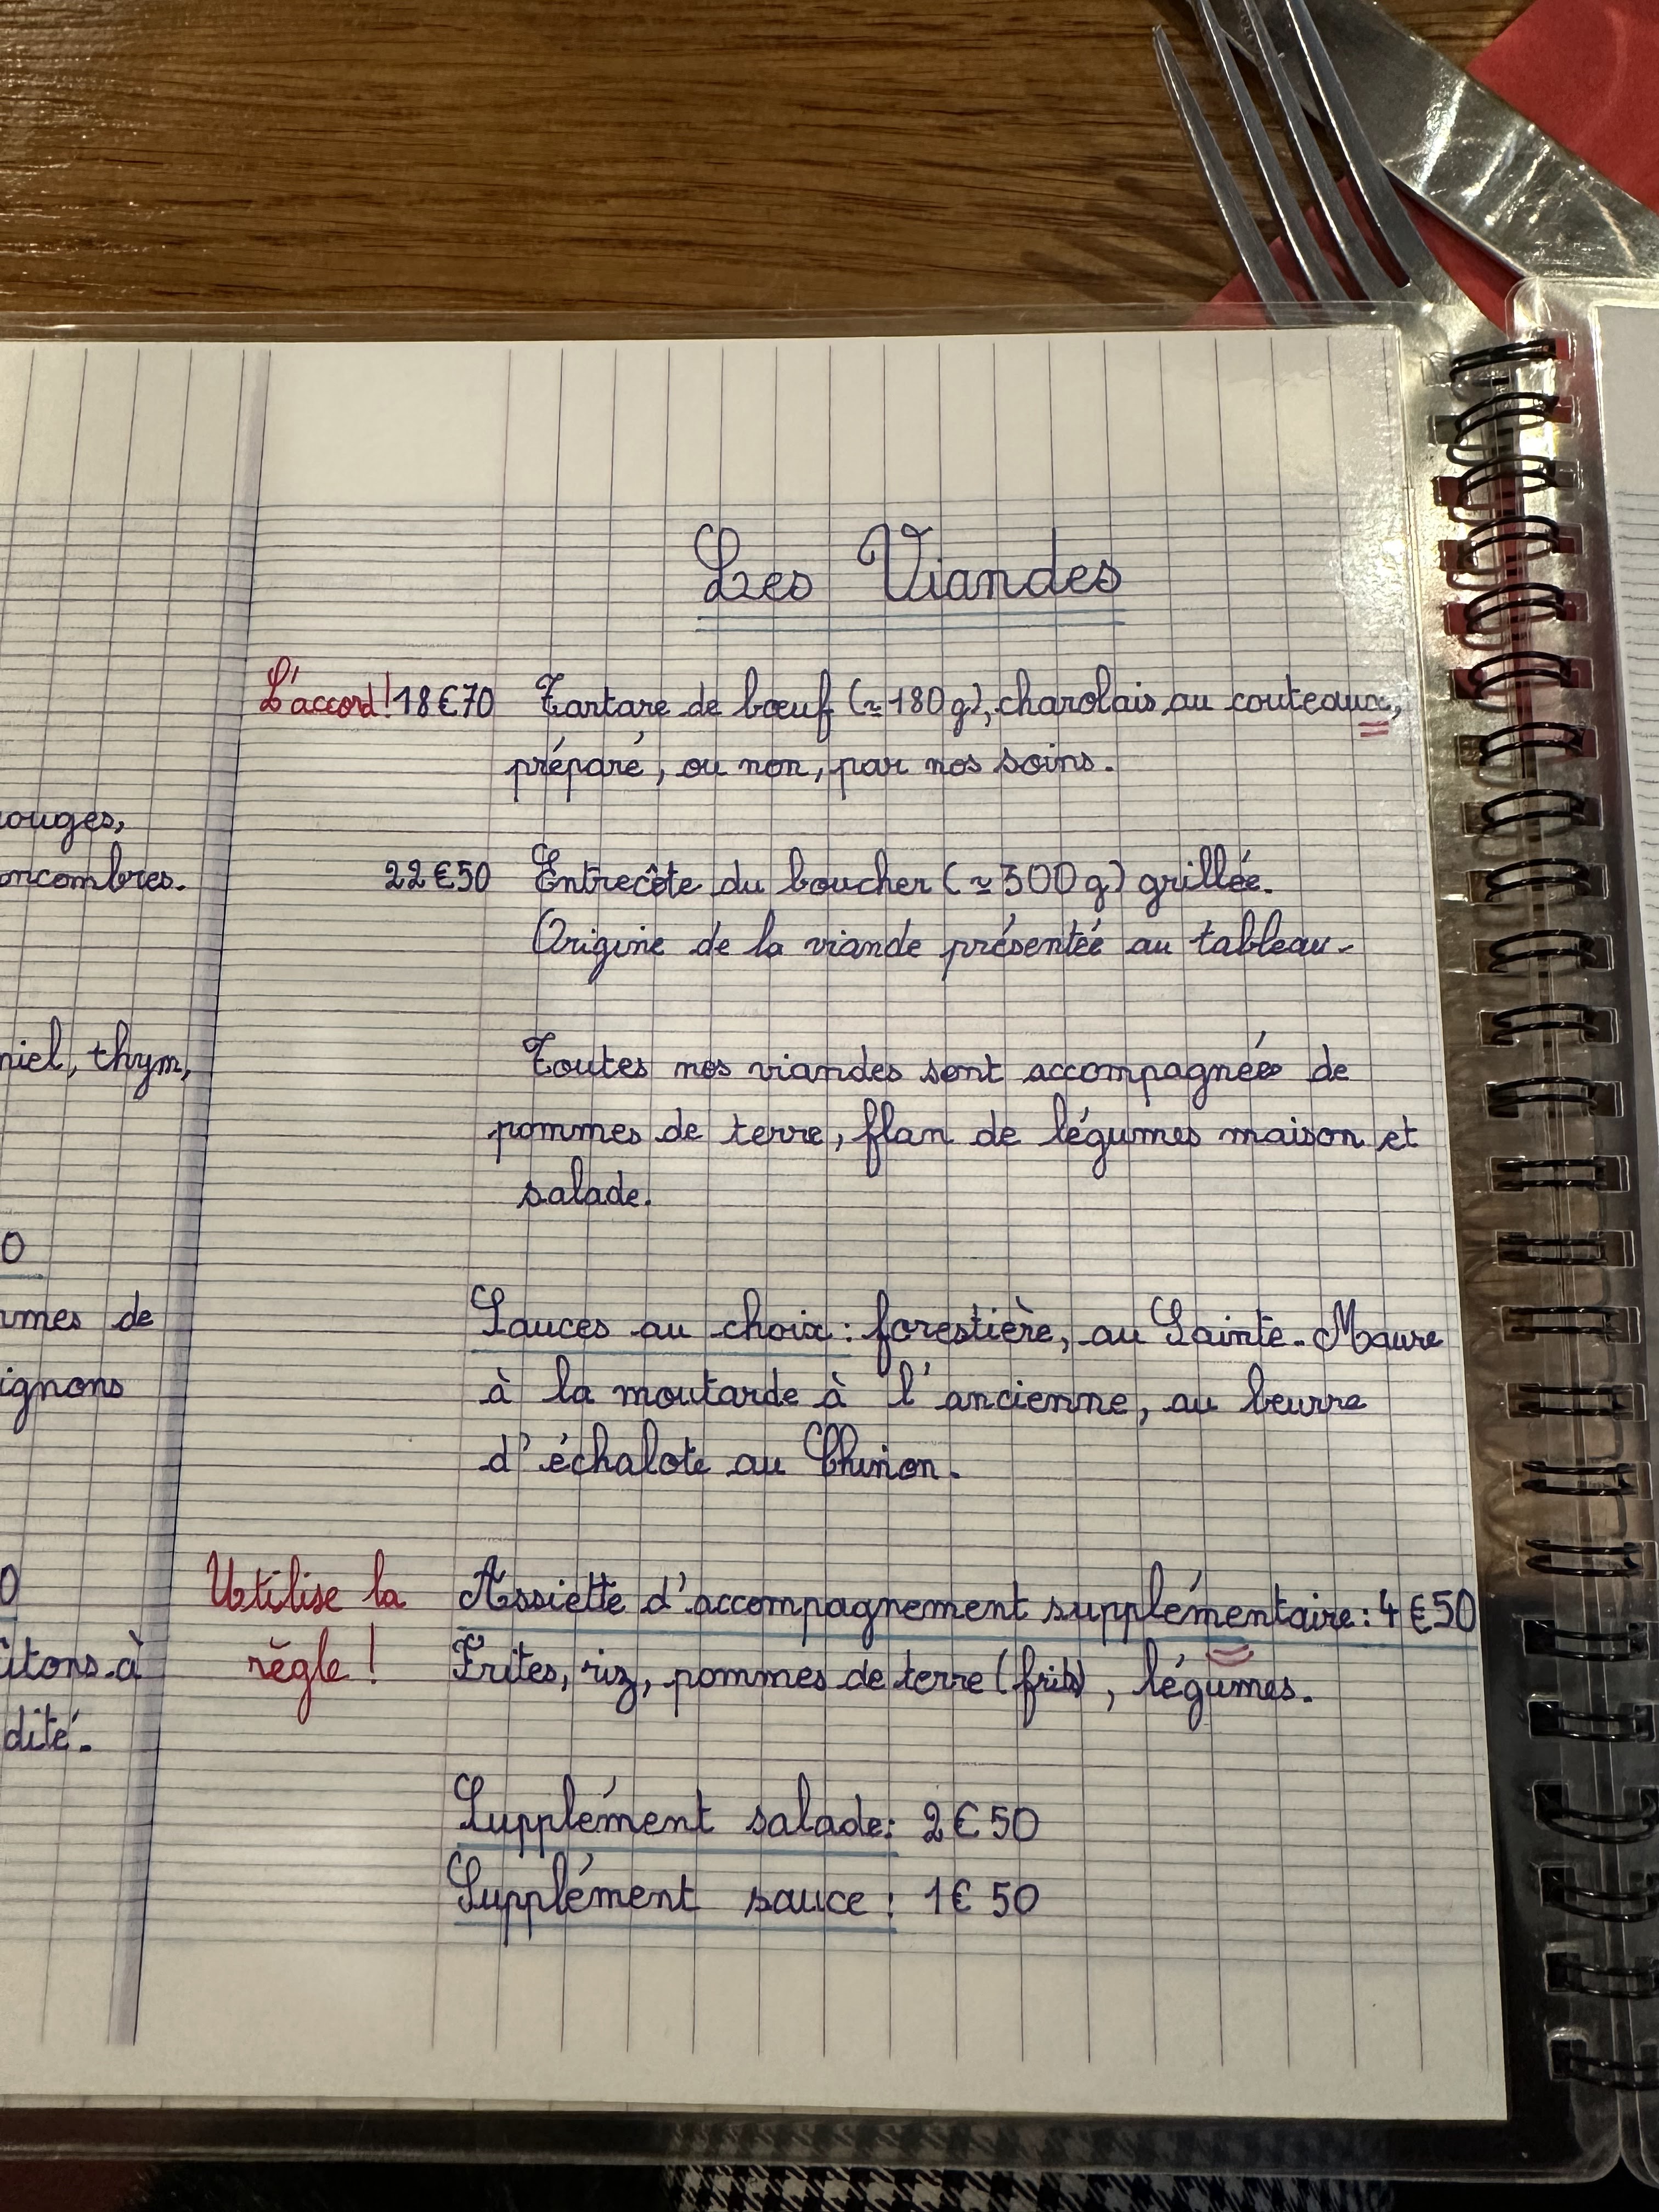 Les Viandes
L'accord! 18€70 Tartare de bœuf (≃ 180g), charolais au couteaux,
préparé, ou non, par nos soins.
ouges,
oncombres.
22€50 Entrecôte du boucher (≃ 300g) grillée.
Origine de la viande présentée au tableau.
niel, thym,
Toutes nos viandes sont accompagnées de
pommes de terre, flan de légumes maison et
salade.
0
mmes de
Sauces au choix : forestière, au Sainte-Maure
ignons
à la moutarde à l'ancienne, au beurre
d'échalote au Chinon.
0
Utilise la
règle !
Assiette d'accompagnement supplémentaire : 4€50
Frites, riz, pommes de terre (frits), légumes.
itons à
dité.
Supplément salade : 2€50
Supplément sauce : 1€50